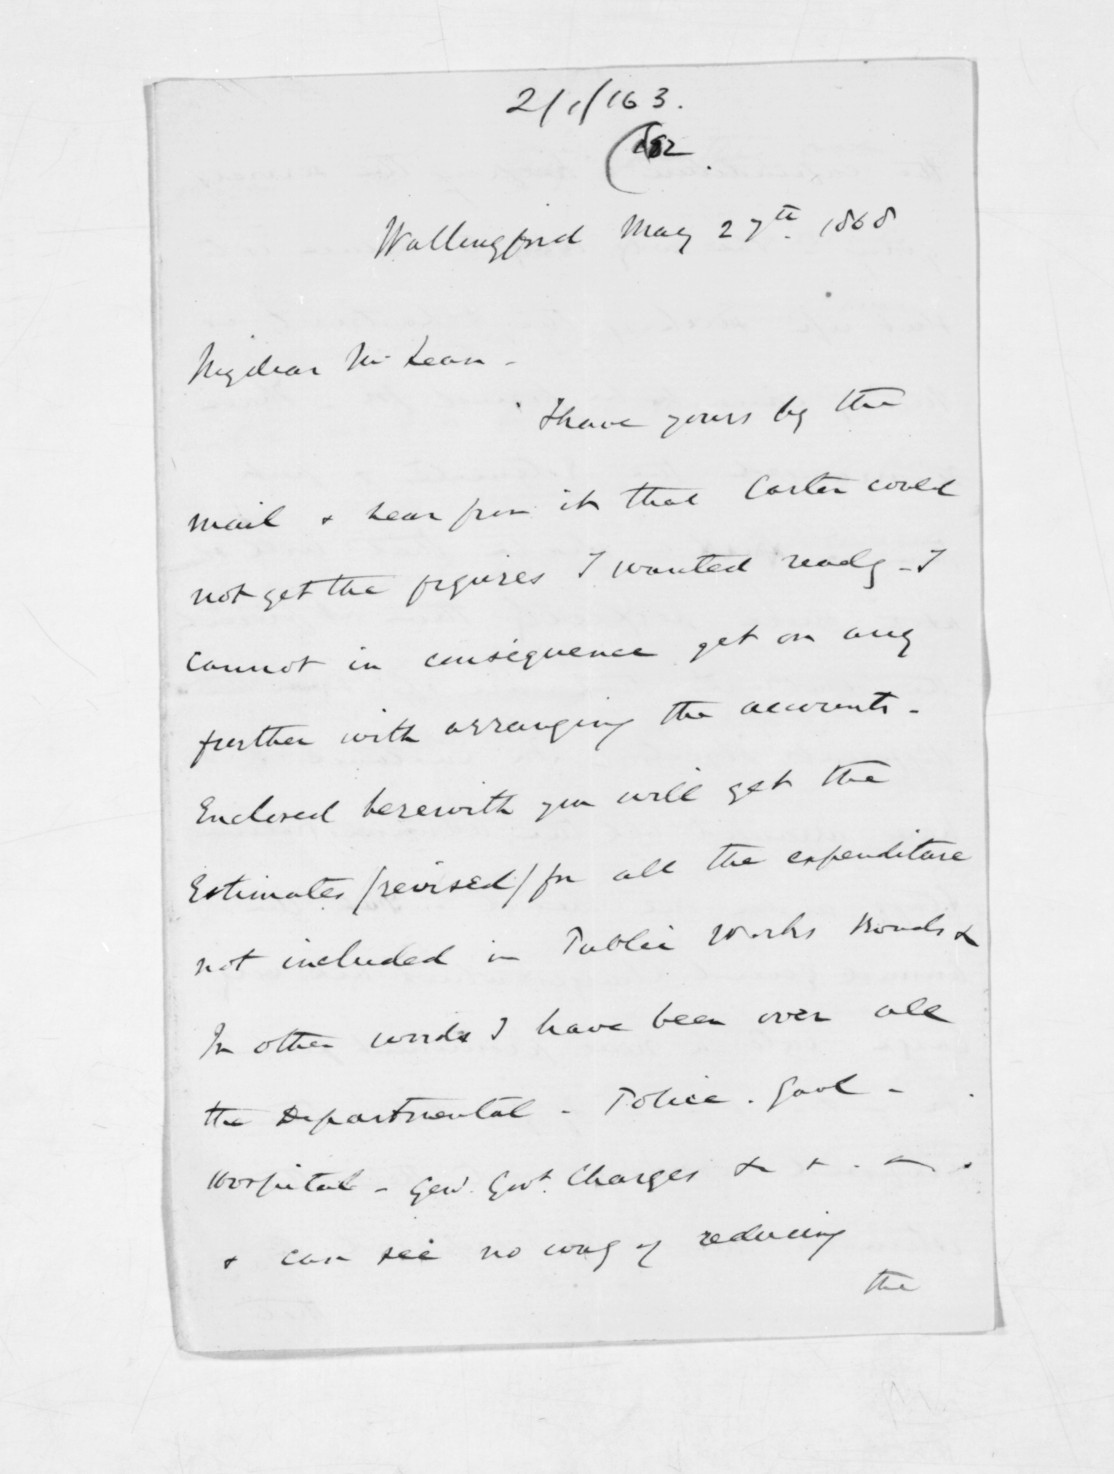 2/1/163.
Wallingford May 27th. 1868
My dear McLean -
I have yours by the
mail & hear from it that Carter could
not get the figures I wanted ready - I
cannot in consequence get on any
further with arranging the accounts -
Enclosed herewith you will get the
Estimates (revised) for all the expenditure
not included in Public Works Bonds &
In other words I have been over all
the Departmental - Police - Gaol -
Hospital - Genl. Govt. Charges & &
& can see no way of reducing
the